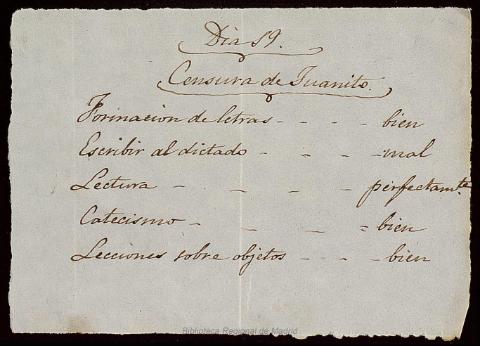 Dia 19.
Censura de Juanito.
Formacion de letras - - - - bien
Escribir al dictado - - - - mal
Lectura - - - - perfectamte.
Catecismo - - - = bien
Lecciones sobre objetos - - - bien
Biblioteca Regional de Madrid